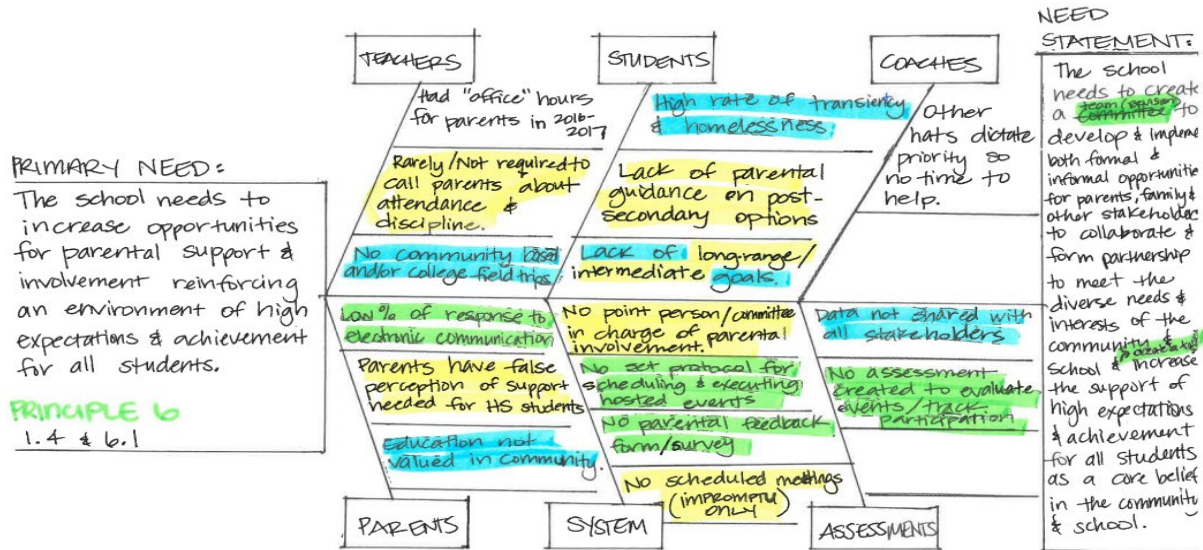 PRIMARY NEED:
The school needs to
increase opportunities
for parental support &
involvement reinforcing
an environment of high
expectations & achievement
for all students.
PRINCIPLE 6
1.4 & 6.1
TEACHERS
Had "office" hours
for parents in 2016-
2017
Rarely/Not required to
call parents about
attendance &
discipline.
No community based
and/or college field trips
STUDENTS
High rate of transiency
& homelessness
Lack of parental
guidance on post-
secondary options
Lack of long-range/
intermediate goals.
COACHES
Other
hats dictate
priority so
no time to
help.
Low % of response to
electronic communication
Parents have false
perception of support
needed for HS students
Education not
valued in community.
PARENTS
No point person/committee
in charge of parental
involvement.
No set protocol for
scheduling & executing
hosted events
No parental feedback
form/survey
No scheduled meetings
(IMPROMPTU
ONLY)
SYSTEM
Data not shared with
all stakeholders
No assessment
created to evaluate
events/track
participation
ASSESSMENTS
NEED
STATEMENT:
The school
needs to create
a team/
committee to
develop & impleme
both formal &
informal opportunitie
for parents, family &
other stakeholder
to collaborate &
form partnership
to meet the
diverse needs &
interests of the
community &
school & increase
the support of
high expectations
& achievement
for all students
as a core belief
in the community
& school.